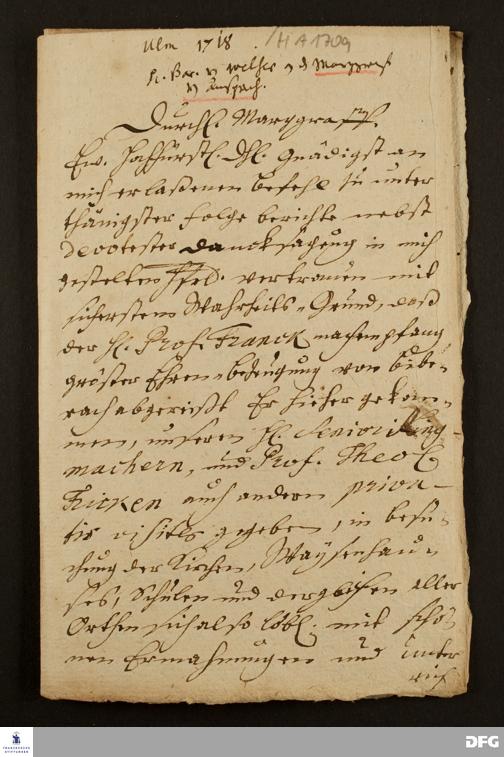 Ulm 1718. / H A 1709
H. Bar. v. Welsle v. d. Marggraf
v. Anspach.
Durchl. Marggraff.
Ew. Hochfürstl. Dhl. Gnädigst an
mich erlaßenen Befehl zu unter
thänigster folge berichte nebst
devotester Dancksagung in mich
gestelten vertrauen mit
sicherstem Wahrheits-Grund, daß
der H. Prof. Franck nach empfang
gröster Ehren-bezeugung von Bibe-
rach abgereißt Er hieher gekom-
men, unserem H. Seniori
machern, und Prof. Theol.
Fricken auch andern priva-
tis visiten gegeben, in besu-
chung der Kirchen, Waysenhau-
ses, Schulen und dergleichen aller
Orthen sich also löbl. mit schö-
nen Ermahnungen und Unter
rich
FRANCKESCHE
STIFTUNGEN
DFG